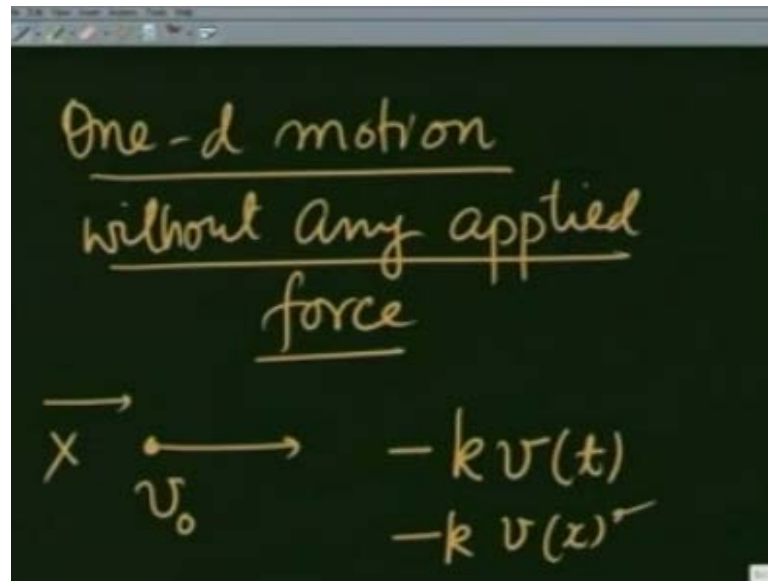 One-d motion
without any applied
force
X
v₀
-k v(t)
-k v(x)